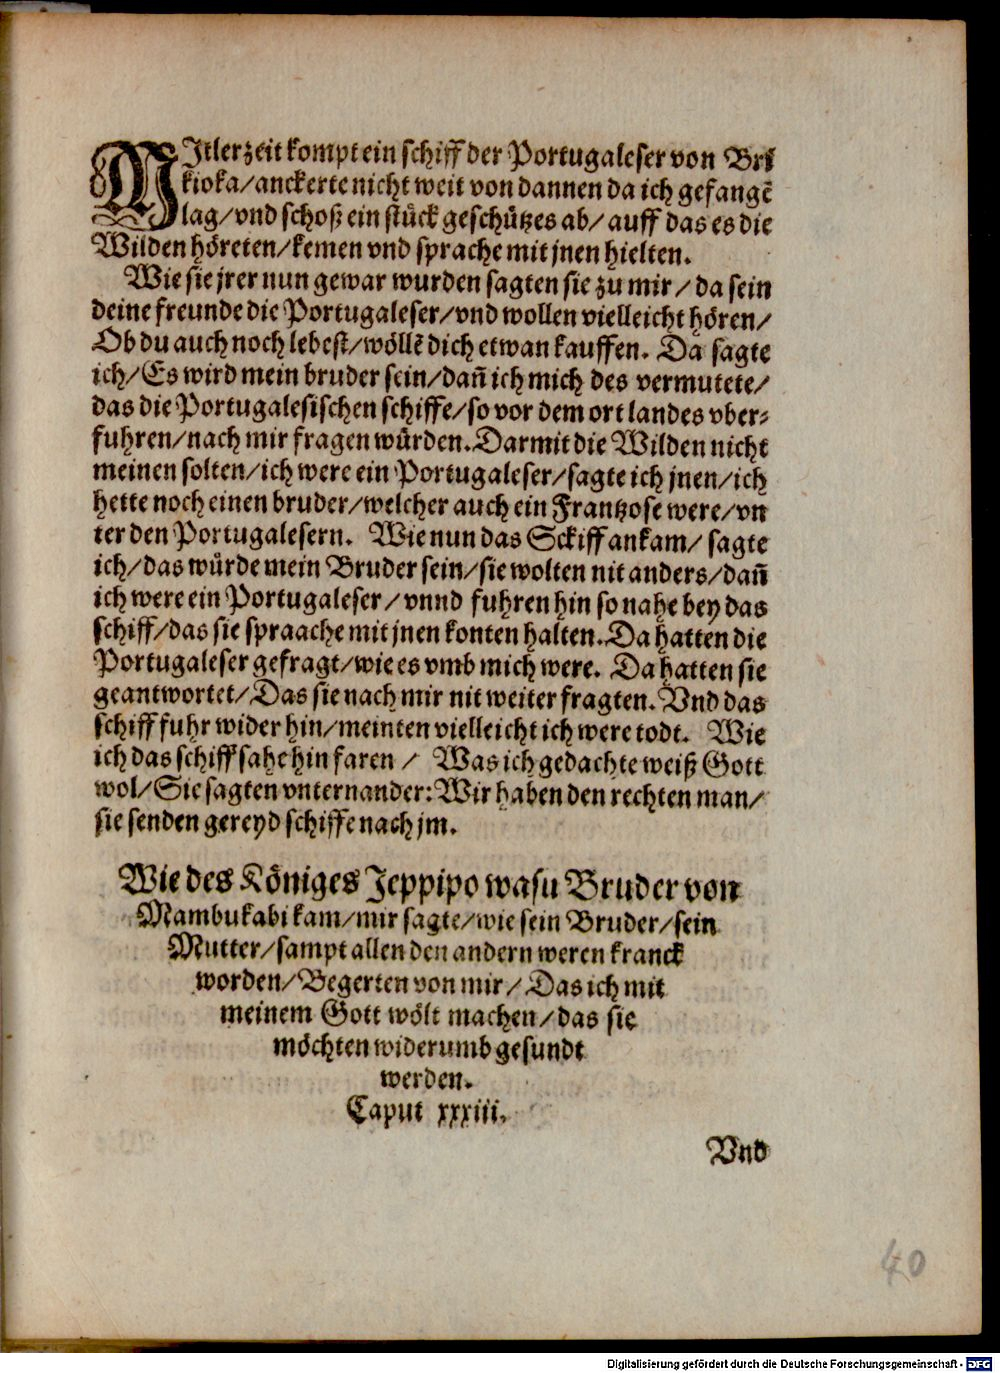 MItlerzeit kompt ein schiff der Portugaleser von Bri
kioka/anckerte nicht weit von dannen da ich gefangē
lag/vnd schoß ein stück geschützes ab/ auff das es die
Wilden höreten/kemen vnd sprache mit jnen hielten.
Wie sie jrer nun gewar wurden sagten sie zu mir/ da sein
deine freunde die Portugaleser/vnd wollen vielleicht hören/
Ob du auch noch lebest/wöllē dich etwan kauffen. Da sagte
ich/Es wird mein bruder sein/dañ ich mich des vermutete/
das die Portugalesischen schiffe/so vor dem ort landes vber⸗
fuhren/nach mir fragen würden. Darmit die Wilden nicht
meinen solten/ich were ein Portugaleser/sagte ich jnen/ich
hette noch einen bruder/welcher auch ein Frantzose were/vn
ter den Portugalesern. Wie nun das Sckiff ankam/ sagte
ich/das würde mein Bruder sein/sie wolten nit anders/dañ
ich were ein Portugaleser/vnnd fuhren hin so nahe bey das
schiff/das sie spraache mit jnen konten halten. Da hatten die
Portugaleser gefragt/wie es vmb mich were. Da hatten sie
geantwortet/Das sie nach mir nit weiter fragten. Vnd das
schiff fuhr wider hin/meinten vielleicht ich were todt. Wie
ich das schiff sahe hin faren/ Was ich gedachte weiß Gott
wol/Sie sagten vnternander: Wir haben den rechten man/
sie senden gereyd schiffe nach jm.
Wie des Königes Jeppipo wasu Bruder von
Mambukabi kam/mir sagte/wie sein Bruder/sein
Mutter/sampt allen den andern weren kranck
worden/Begerten von mir/Das ich mit
meinem Gott wölt machen/das sie
möchten widerumb gesundt
werden.
Caput xxxiii.
Vnd
40
Digitalisierung gefördert durch die Deutsche Forschungsgemeinschaft - DFG